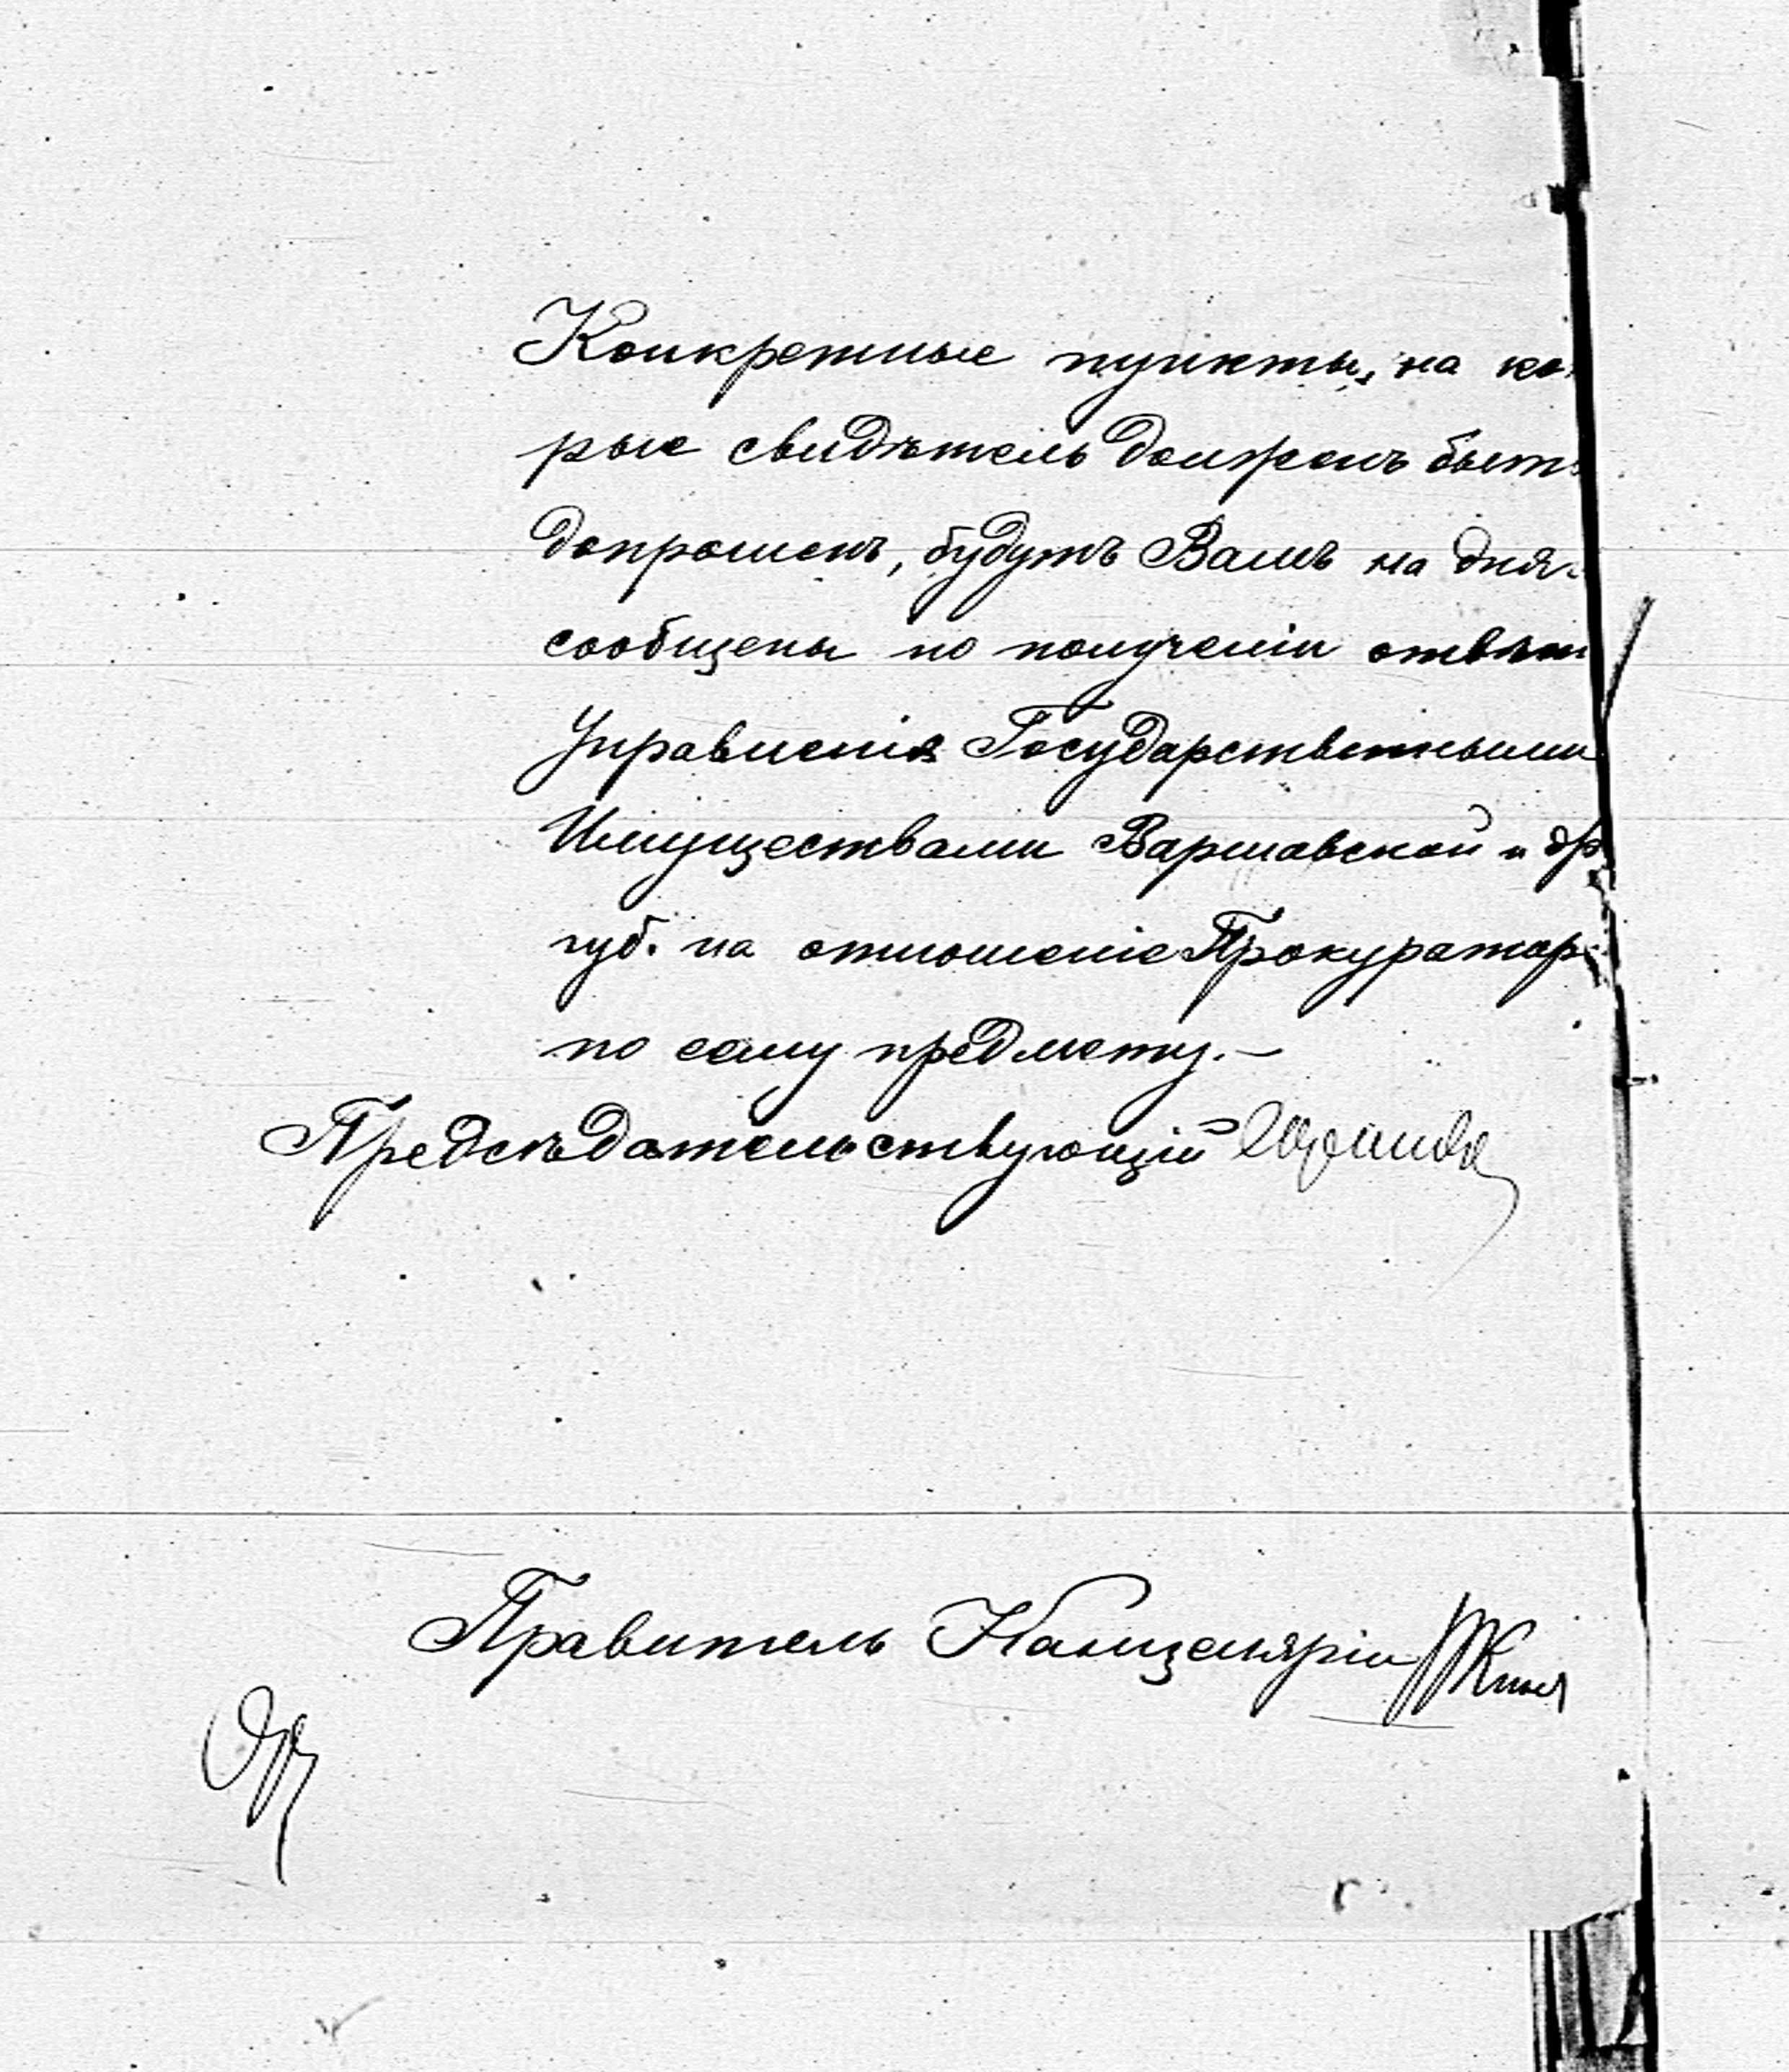 Конкретные пункты, на ко-
рые свидѣтель долженъ быть
допрошенъ, будутъ Вамъ на дня-
сообщены по полученіи отвѣт
Управленія Государственными
Имуществами Варшавской и др
губ. на отношеніе Прокуратор
по сему предмету.—
Предсѣдательствующій
Правитель Канцеляріи